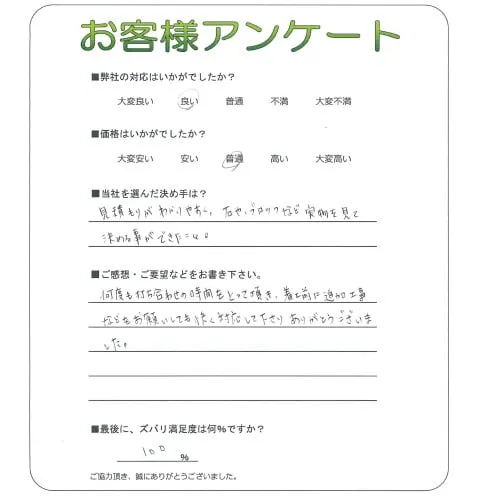 お客様アンケート
■弊社の対応はいかがでしたか？
大変良い 良い 普通 不満 大変不満
■価格はいかがでしたか？
大変安い 安い 普通 高い 大変高い
■当社を選んだ決め手は？
見積もりがわかりやすく、石や、ブロックなど実物を見て
決める事ができたこと。
■ご感想・ご要望などをお書き下さい。
何度も打ち合わせの時間をとって頂き、着工前に追加工事
などをお願いしても快く対応して下さりありがとうございま
した。
■最後に、ズバリ満足度は何％ですか？
100 ％
ご協力頂き、誠にありがとうございました。